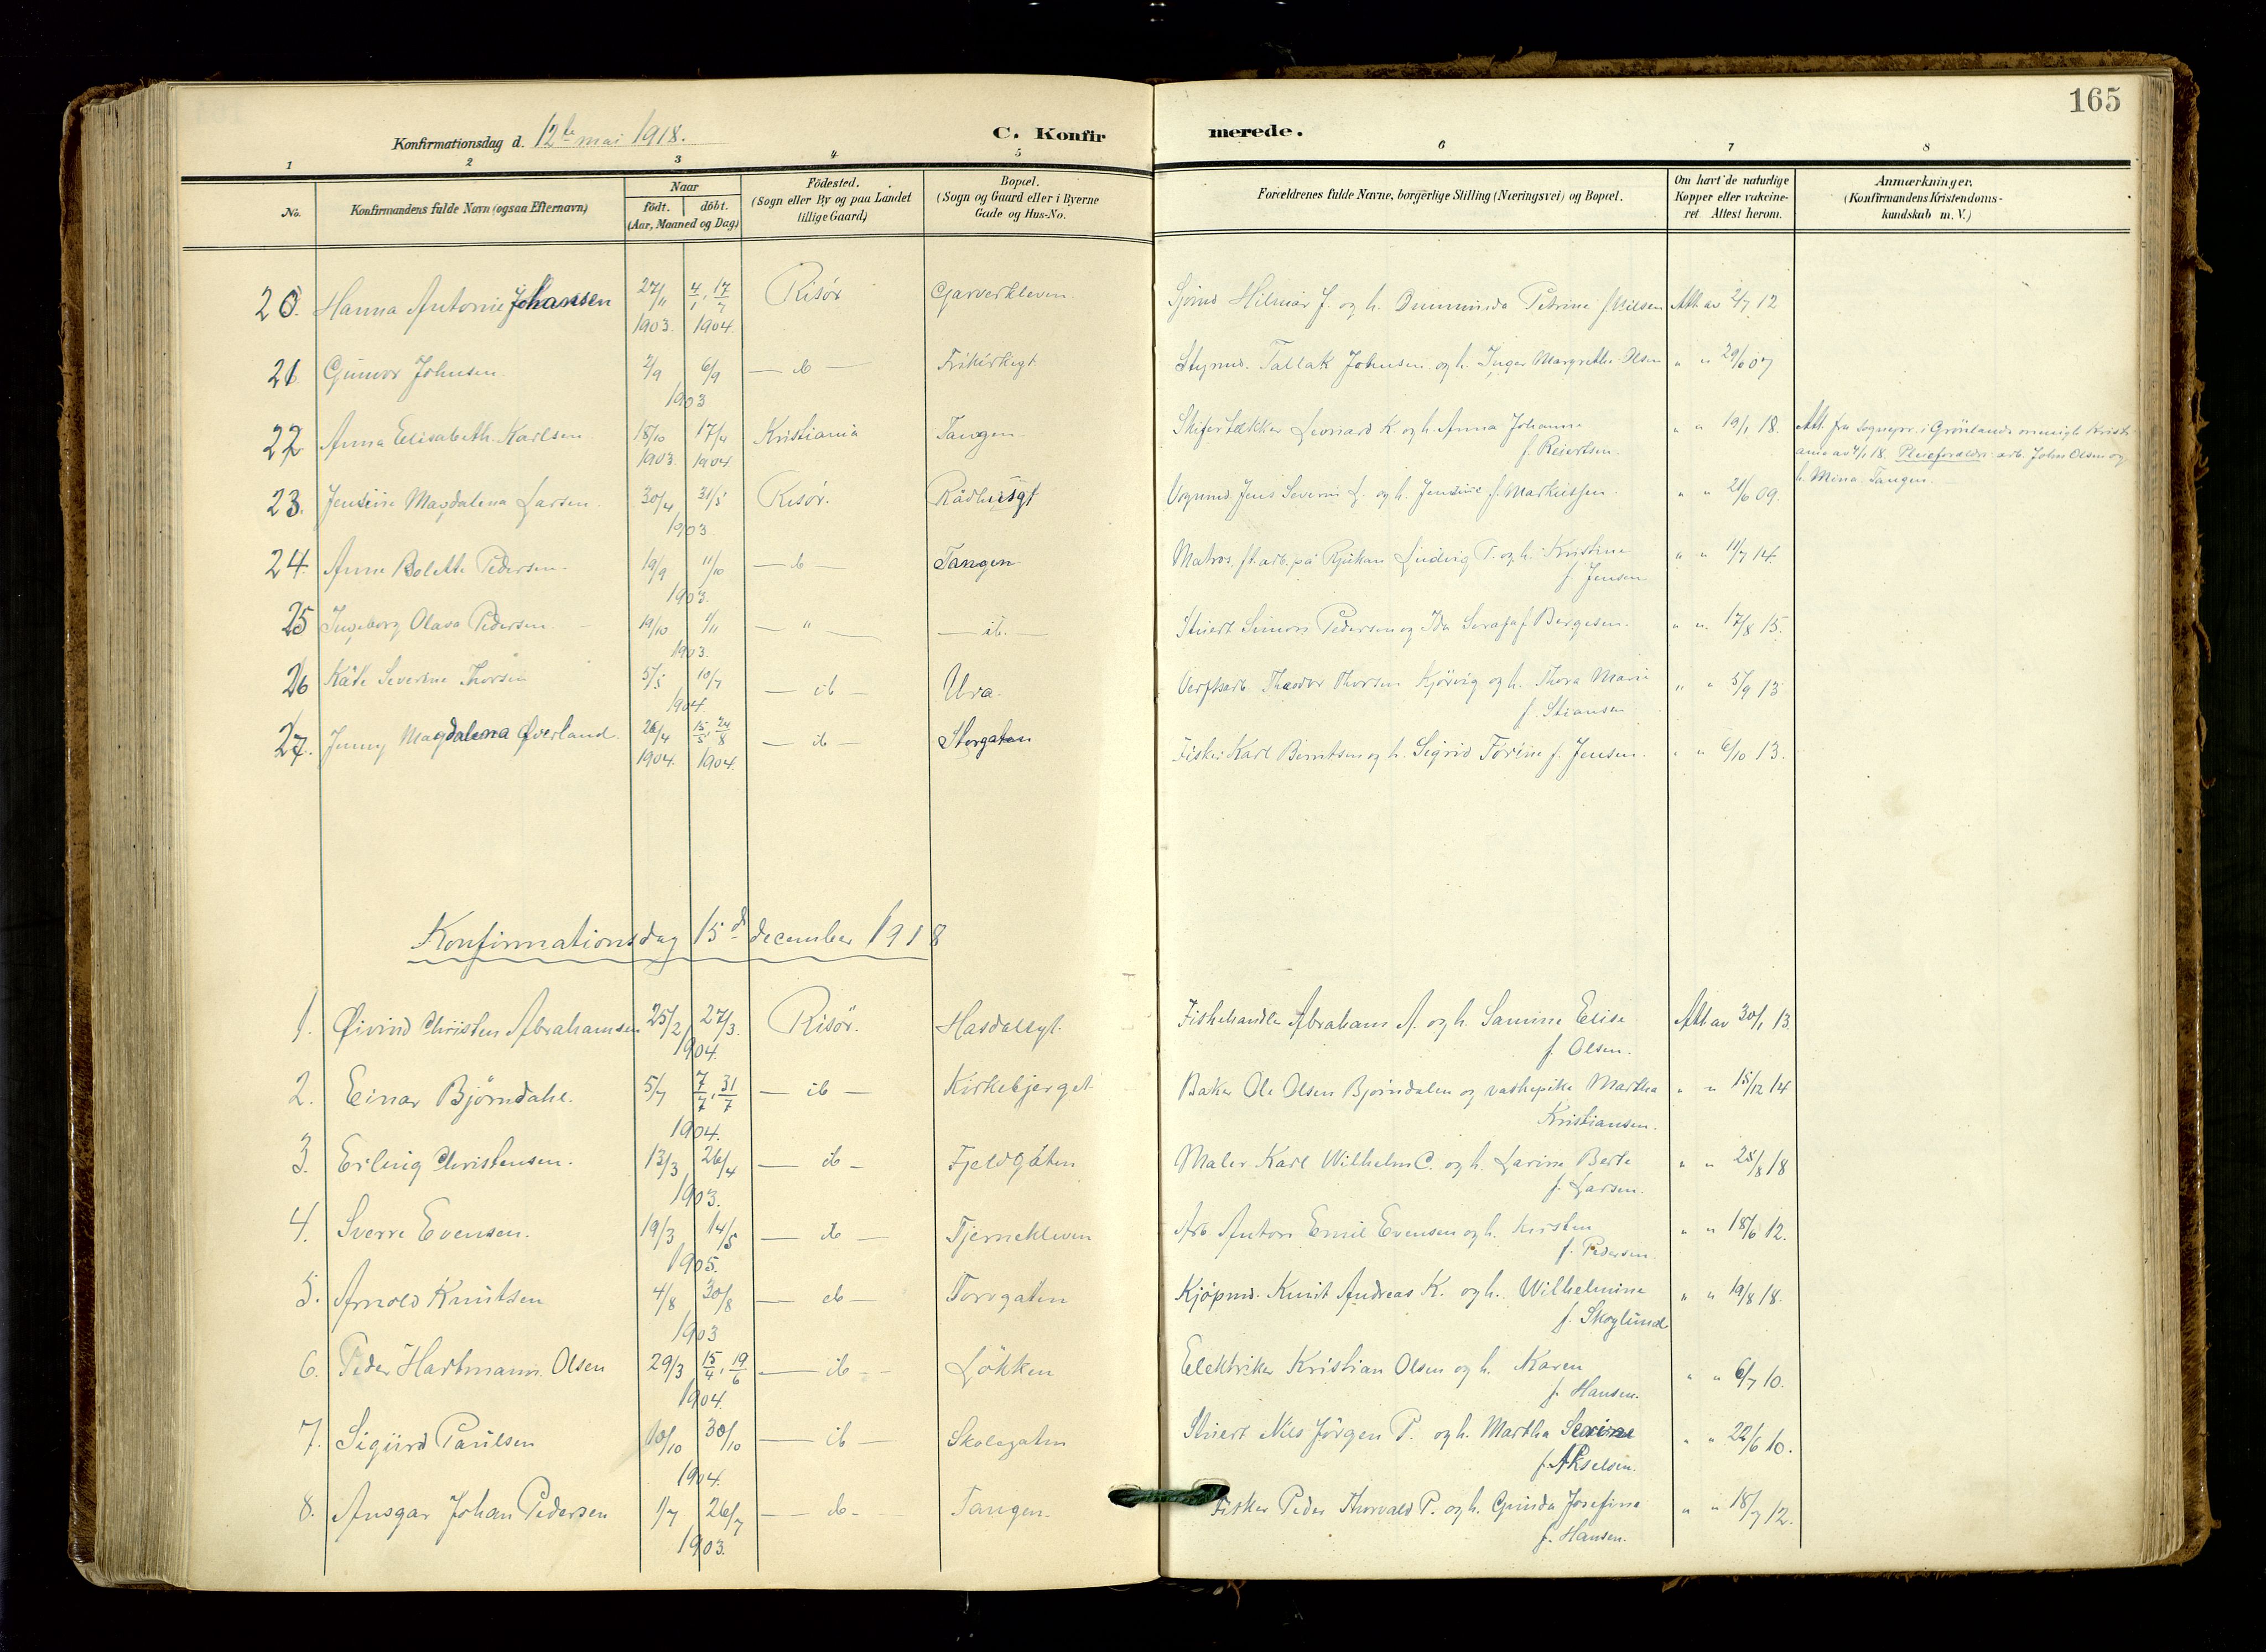 165
Konfirmationsdag d. 12te mai 1918.
C. Konfirmerede.
1 2 3 4 5 6 7 8
No.
Konfirmandens fulde Navn (ogsaa Efternavn)
Naar
födt. döbt.
(Aar, Maaned og Dag)
Födested.
(Sogn eller By og paa Landet
tillige Gaard)
Bopæl.
(Sogn og Gaard eller i Byerne
Gade og Hus-No.
Forældrenes fulde Navne, borgerlige Stilling (Næringsvei) og Bopæl.
Om havt de naturlige
Kopper eller vakcine-
ret Attest herom.
Anmærkninger.
(Konfirmandens Kristendoms-
kundskab m. V.)
20. Hanna Antonie Johansen 27/11 1903. 4/1, 17/7 1904. Risör Garverkleven. Sjömd Hilmar J. og h. Petrine f. Nilsen Att. av 2/7 12
21 Gunvor Johnsen. 2/9 6/9 1903 — ib — Frikirkegt. Styrmd. Tallak Johnsen og h. Inger Margrethe Olsen " " 29/6 07
22 Anna Elisabeth Karlsen. 18/10 1903. 17/4 1904 Kristiania Tangen Skifertækker Leonard K. og h. Anna Johanne
f. Reiertsen. " " 19/1 18. Att. fra sognepr. i Grönlands menigh. Kristi-
ania av 4/1 18. Pleieforældre: arb. John Olsen og
h. Mina. Tangen.
23. Jensine Magdalena Larsen. 30/4 31/5 1903. Risör. Rådhusgt Vognmd. Jens Severin L. og h. Jensine f. Markussen. " " 21/6 09.
24. Anne Bolette Pedersen. 19/9 11/10 1903. — ib — Tangen. Matros, f.t. arb. på Rjukan Ludvig P. og h. Kristine
f. Jensen " " 11/7 14.
25 Ingeborg Olava Pedersen. 19/10 1/11 1903. — " — — ib. — Stuert Simon Pedersen og Ida Serafa f. Bergesen. " " 17/8 15.
26 Käte Severine Thorsen 5/5 10/7 1904. — ib — Ura. Verftsarb. Theodor Thorsen Kjörvig og h. Thora Marie
f. Stiansen " " 5/9 13
27. Jenny Magdalena Øverland. 26/4 1904. 15/5, 24/8 1904. — ib — Storgaten Fisker Karl Berntsen og h. Sigrid Torine f. Jensen. " " 6/10 13.
Konfirmationsdag 15d december 1918
1. Øivind Christen Abrahamsen 25/2 27/3. 1904. Risör. Hasdalsgt. Fiskehandler Abraham A. og h. Samine Elise
f. Olsen. Att. av 30/1 13.
2. Einar Björndahl. 5/7 7/7, 31/7 1904. — ib — Kirkebjerget Baker Ole Olsen Bjørndalen og vaskepike Martha
Kristiansen. " " 15/12 14
3. Erling Christensen. 13/3 26/4 1903. — ib — Fjeldgaten Maler Karl Wilhelm C. og h. Larine Berte
f. Larsen. " " 28/8 18
4. Sverre Evensen. 19/3 14/5 1905. — ib — Tjernekleven Arb Anton Emil Evensen og h. Kirsten
f. Pedersen. " " 18/6 12.
5. Arnold Knutsen 4/8 30/8 1903 — ib — Torvgaten Kjøpmd. Knut Andreas K. og h. Wilhelmine
f. Skoglund " " 19/8 18.
6. Peder Hartmann Olsen 29/3 15/4, 19/6 1904. — ib — Løkken Elektriker Kristian Olsen og h. Karen
f. Hansen. " " 6/7 10.
7. Sigurd Paulsen 10/10 30/10 1904. — ib — Skolegaten Stuert Nils Jörgen P. og h. Martha Severine
f. Akselsen. " " 22/6 10.
8. Ansgar Johan Pedersen 1/7 26/7 1903. — ib — Tangen. Fisker Peder Thorvald P. og h. Gunda Josefine
f. Hansen. " " 18/7 12.